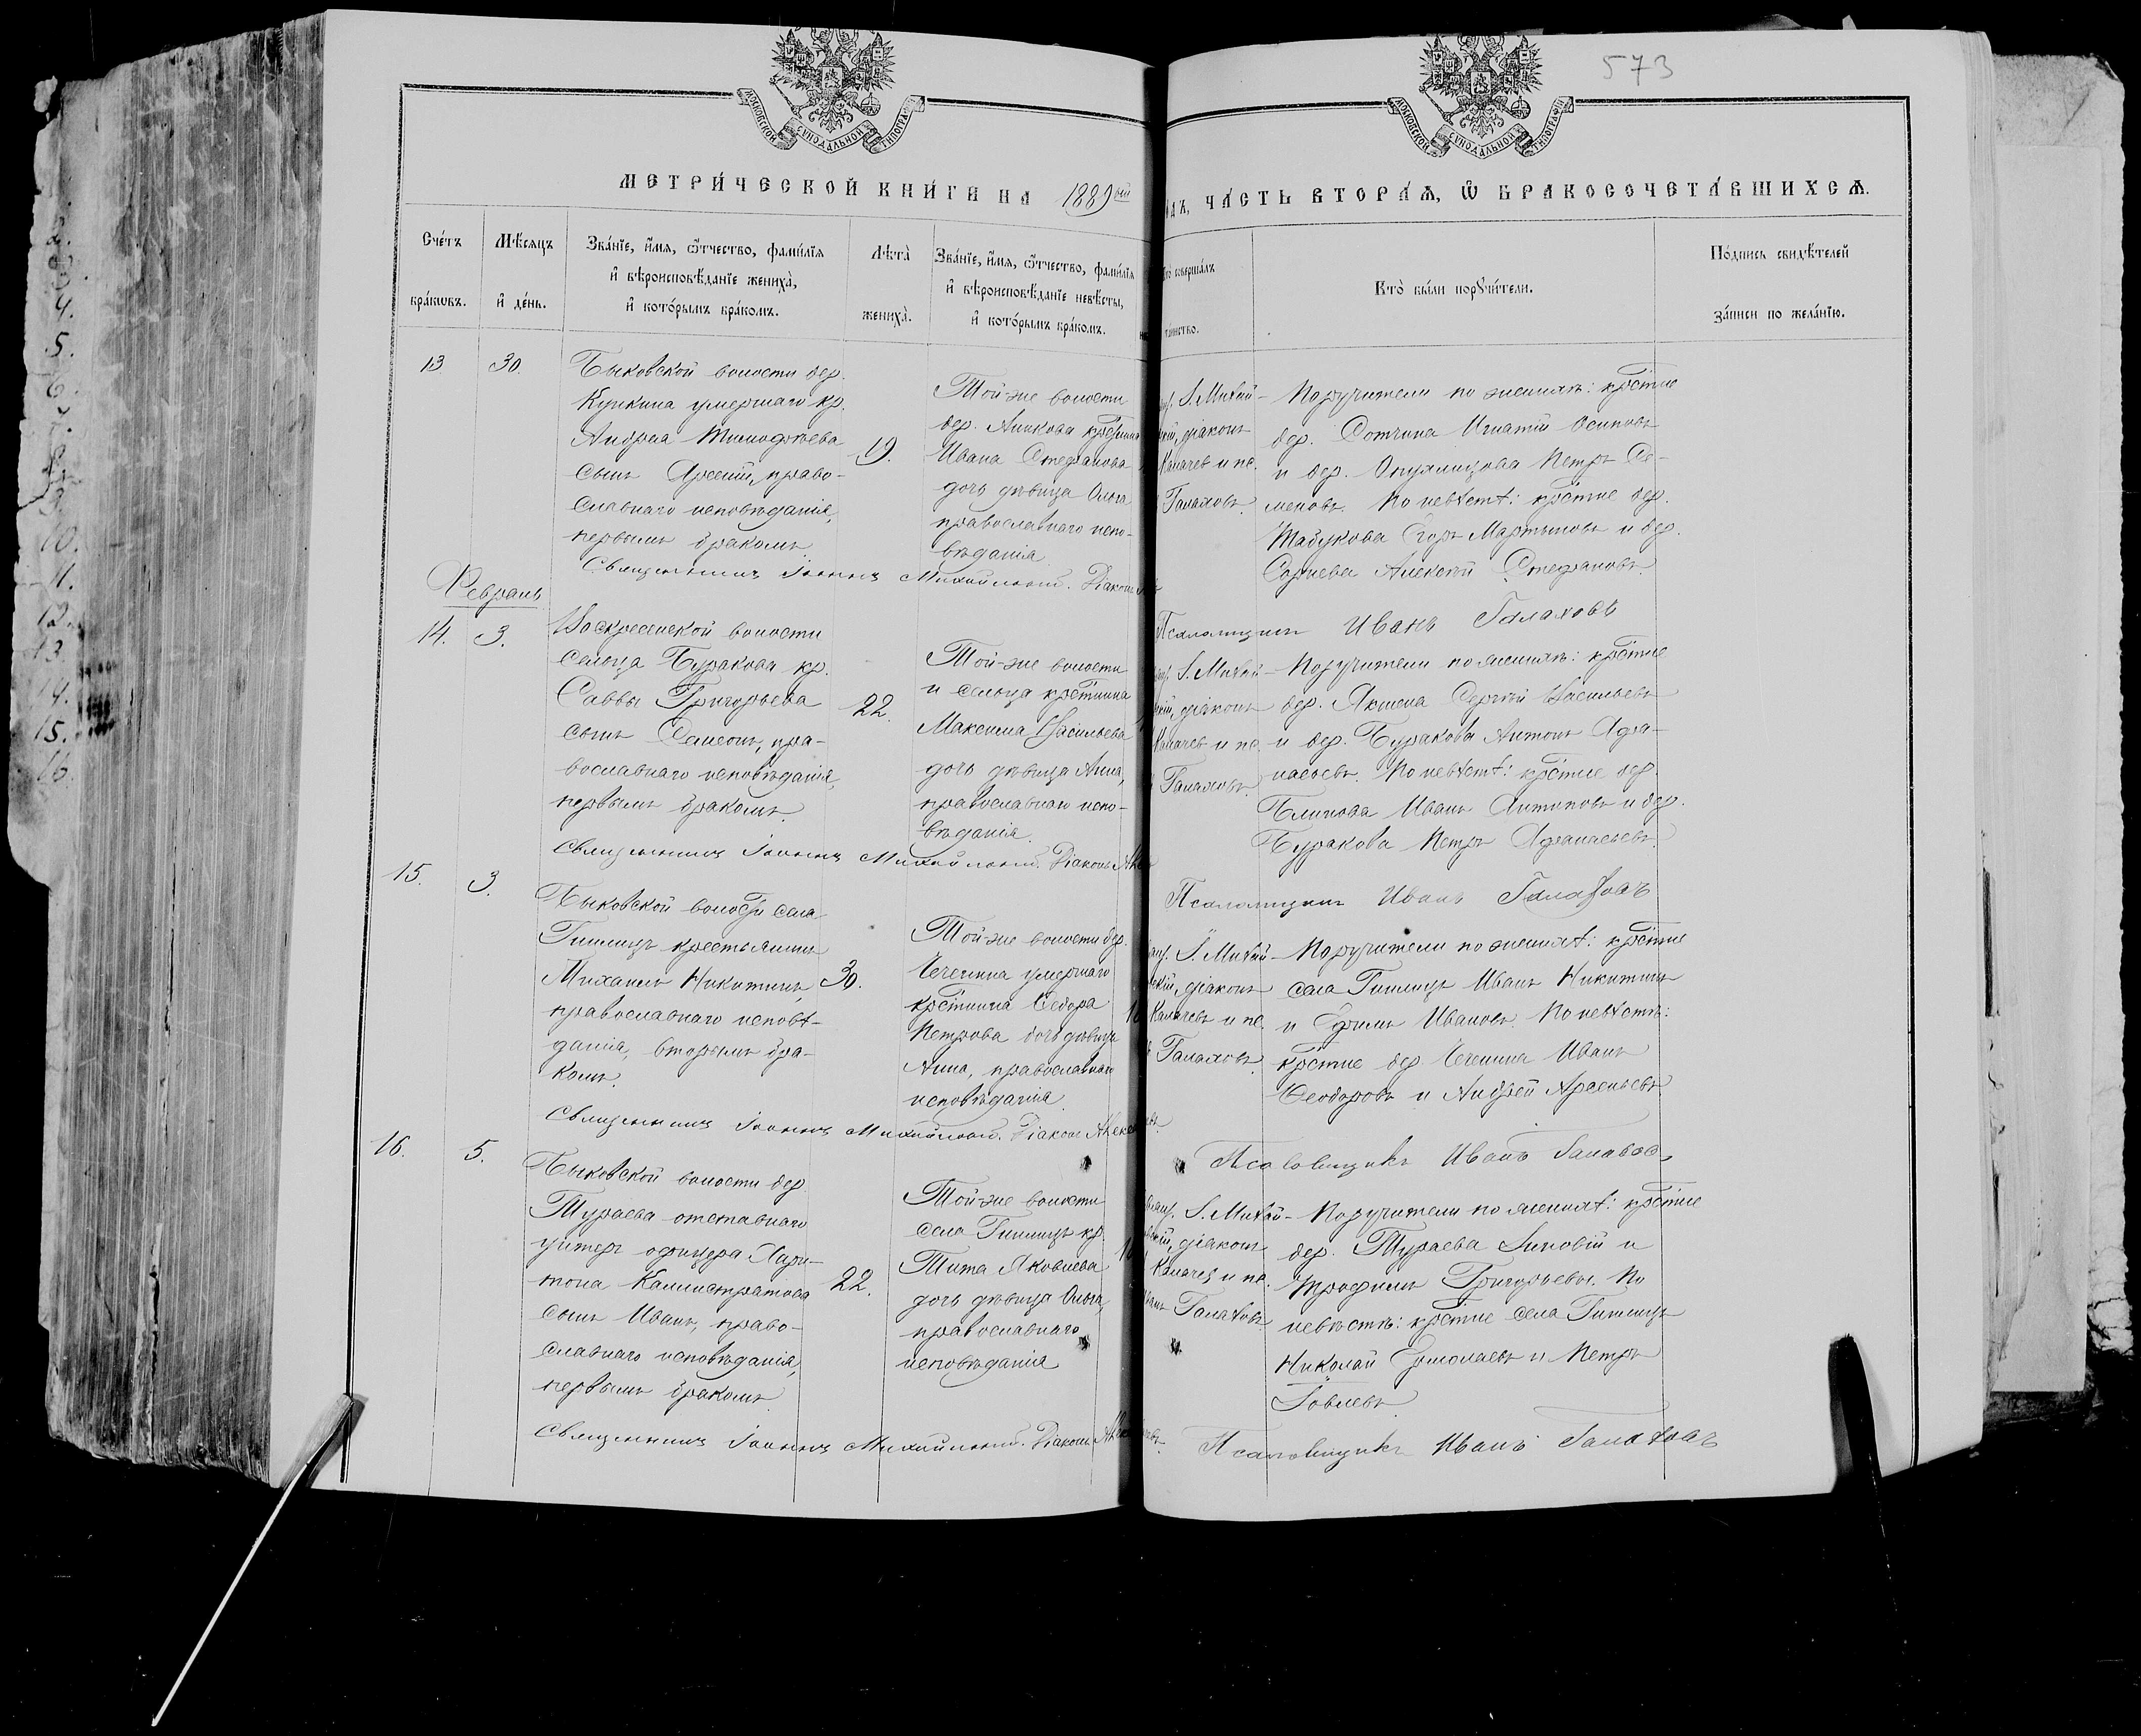 573
МОСКОВСКОЙ СѴНОДАЛЬНОЙ ТИПОГРАФІИ
МОСКОВСКОЙ СѴНОДАЛЬНОЙ ТИПОГРАФІИ
МЕТРИ́ЧЕСКОЙ КНИ́ГИ НА 1889 ый
ЧА́СТЬ ВТОРА́Я, Ѿ БРАКОСОЧЕТА́ВШИХСѦ.
Сче́тъ бра́ковъ.
Мѣ́сяцъ и҆ де́нь.
Зва́нїе, и҆́мя, ѻ҆́тчество, фами́лїя
и҆ вѣроисповѣ́данїе жениха̀,
и҆ кото́рымъ бра́комъ.
Лѣта̀
жениха̀.
Зва́нїе, и҆́мя, ѻ҆́тчество, фами́лїя
и҆ вѣроисповѣ́данїе невѣ́сты,
и҆ кото́рымъ бра́комъ.
совершáлъ
Кто̀ бы́ли порꙋчи́тели.
По́дпись свидѣ́телей
за́писи по жела́нїю.
13
30.
Быковской волости дер.
Купкина умершаго кр.
Андрея Тимофѣева
сынъ Арсеній, право-
славнаго исповѣданія,
первымъ бракомъ.
19.
Той-же волости
дер. Аникова кре̅нина
Ивана Стефанова
дочь дѣвица Ольга
православнаго испо-
вѣданія
І. Михай-
діаконъ
Калачев и пс.
Галаховъ.
Поручители по женихѣ: кре̅тне
дер. Сотчина Игнатій Осиповъ
и дер. Петръ Се-
меновъ. По невѣстѣ: кре̅тне дер.
Егоръ Мартыновъ и дер.
Алексѣй Стефановъ.
Священникъ Іоаннъ Михайловскій. Діаконъ
Псаломщикъ Иванъ Галаховъ
Февраль
14.
3.
Воскресенской волости
сельца Буракова кр.
Саввы Григорьева
сынъ Симеонъ, пра-
вославнаго исповѣданія,
первымъ бракомъ.
22.
Той-же волости
и сельца кре̅тнина
Максима Васильева
дочь дѣвица Анна,
православнаго испо-
вѣданія.
І. Михай-
діаконъ
Калачев и пс.
Галаховъ.
Поручители по женихѣ: кре̅тне
дер. Якшена Сергѣй Васильевъ
и дер. Буракова Антонъ Афа-
насьевъ. По невѣстѣ: кре̅тне дер.
Блинова Иванъ Антиповъ и дер.
Буракова Петръ Афанасьевъ.
Священникъ Іоаннъ Михайловскій. Діаконъ
Псаломщикъ Иванъ Галаховъ
15.
3.
Быковской волости села
Гиглицъ крестьянинъ
Михаилъ Никитинъ,
православнаго исповѣ-
данія, вторымъ бра-
комъ.
30.
Той-же волости дер.
Чечкина умершаго
кре̅тнина Ѳедора
Петрова дочь дѣвица
Анна, православнаго
исповѣданія
І. Михай-
діаконъ
Калачевъ и пс.
Галаховъ.
Поручители по женихѣ: кре̅тне
села Гиглицъ Иванъ Никитинъ
и Ефимъ Ивановъ. По невѣстѣ:
кре̅тне дер. Чечкина Иванъ
Ѳеодоровъ и Андрей Арсеньевъ.
Священникъ Іоаннъ Михайловскій. Діаконъ
Псаломщикъ Иванъ Галахов
16.
5.
Быковской волости дер.
Тураева отставнаго
унтеръ офицера Хари-
тона Каллистратова
сынъ Иванъ, право-
славнаго исповѣданія,
первымъ бракомъ.
22.
Той-же волости
села Гиглицъ кр.
Тита Яковлева
дочь дѣвица Ольга,
православнаго
исповѣданія
І. Михай-
діаконъ
Калачев и пс.
Галаховъ.
Поручители по женихѣ: кре̅тне
дер. Тураева Зиновій и
Трофимъ Григорьевы. По
невѣстѣ: кре̅тне села Гиглицъ
Николай Ермолаевъ и Петръ
Іовлевъ.
Священникъ Іоаннъ Михайловскій. Діаконъ
Псаломщикъ Иванъ Галаховъ
4.
5.
10.
11.
12.
13.
14.
15.
16.